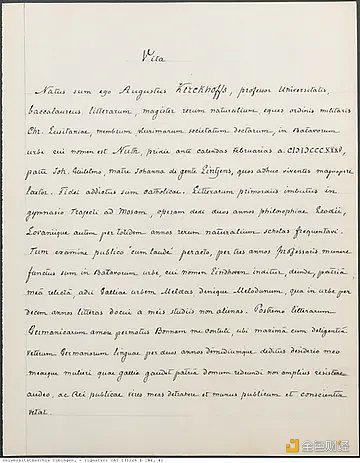 Vita
Natus sum ego Augustus Kerckhoffs, professor Universitatis,
baccalaureus litterarum, magister rerum naturalium, eques ordinis militaris
Chr. Lusitaniae, membrum plurimarum societatum doctarum, in Batavorum
urbe cui nomen est Nuth, pridie ante calendas Februarias a.
patre Joh. Guilelmo, matre Johanna de gente Lintjens, quos adhuc viventes magnopere
laetor. Fidei addictus sum catholicae. Litterarum primordiis imbutus in
gymnasio Trajecti ad Mosam, operam dedi duos annos philosophiae Leodii,
Lovaniique autem per totidem annos rerum naturalium scholas frequentavi.
Tum examine publico "cum laude" peracto, per tres annos professoris munere
functus sum in Batavorum urbe, cui nomen Eindhoven inditur, deinde, patria
mea relicta, adii Galliae urbem Meldas denique Melodunum, qua in urbe per
decem annos litteras docui a meis studiis non alienas. Postremo litterarum
Germanicarum amore permotus Bonnam me contuli, ubi maxima cum diligentia
veterum Germanorum linguae per duos annos dimidiumque deditus desiderio meo
meaeque mulieri qua gallia gaudet patria domum redeundi non amplius resistere
audeo, ac Rei publicae vires meas detrahere et munus publicum et conscientia
vetat.
Universitätsarchiv Tübingen, - Signatur UAT
金色财经